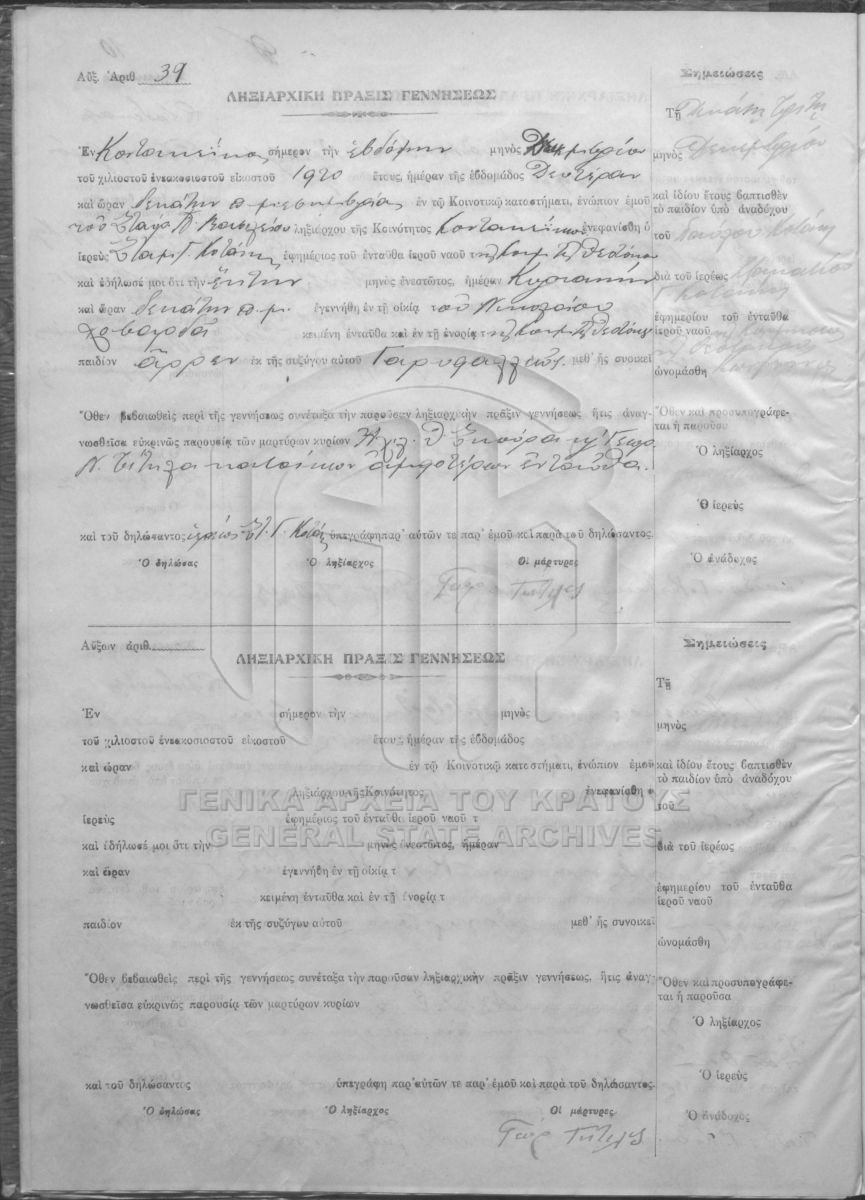 Αὔξ. Ἀριθ 39
ΛΗΞΙΑΡΧΙΚΗ ΠΡΑΞΙΣ ΓΕΝΝΗΣΕΩΣ
Ἐν σήμερον τὴν ἑβδόμην μηνὸς Δεκεμβρίου
τοῦ χιλιοστοῦ ἐνεακοσιοστοῦ εἰκοστοῦ 1920 ἔτους, ἡμέραν τῆς ἑβδομάδος Δευτέραν
καὶ ὥραν δεκάτην π. μεσημβρίας ἐν τῷ Κοινοτικῷ καταστήματι, ἐνώπιον ἐμοῦ
τοῦ ληξιάρχου τῆς Κοινότητος ἐνεφανίσθη ὁ
ἱερεὺς Σταμ. Γ. Κοτάκης ἐφημέριος τοῦ ἐνταῦθα ἱεροῦ ναοῦ τῆς Κοιμ. τῆς Θεοτόκου
καὶ ἐδήλωσέ μοι ὅτι τὴν ἕκτην μηνὸς ἐνεστῶτος, ἡμέραν Κυριακήν
καὶ ὥραν δεκάτην π.μ. ἐγεννήθη ἐν τῇ οἰκίᾳ τοῦ Νικολάου
κειμένῃ ἐνταῦθα καὶ ἐν τῇ ἐνορίᾳ τῆς Κοιμ. τῆς Θεοτόκου
παιδίον ἄρρεν ἐκ τῆς συζύγου αὐτοῦ μεθ' ἧς συνοικεῖ
Ὅθεν βεβαιωθεὶς περὶ τῆς γεννήσεως συνέταξα τὴν παροῦσαν ληξιαρχικὴν πρᾶξιν γεννήσεως ἥτις ἀναγ-
νωσθεῖσα εὐκρινῶς παρουσίᾳ τῶν μαρτύρων κυρίων
κατοίκων ἀμφοτέρων ἐνταῦθα.
καὶ τοῦ δηλώσαντος ἱερέως Στ. Γ. Κοτάκη ὑπεγράφη παρ' αὐτῶν τε παρ' ἐμοῦ καὶ παρὰ τοῦ δηλώσαντος.
Ὁ δηλώσας Ὁ ληξίαρχος Οἱ μάρτυρες
Σημειώσεις
Τῇ δεκάτῃ τρίτῃ
μηνὸς Δεκεμβρίου
καὶ ἰδίου ἔτους βαπτισθὲν
τὸ παιδίον ὑπὸ ἀναδόχου
τοῦ Παύλου Κοτάκη
διὰ τοῦ ἱερέως
ἐφημερίου τοῦ ἐνταῦθα
ἱεροῦ ναοῦ
ὠνομάσθη
Ὅθεν καὶ προσυπογράφε-
ται ἡ παροῦσα
Ὁ ληξίαρχος
Ὁ ἱερεὺς
Ὁ ἀνάδοχος
Αὔξων ἀριθ.
ΛΗΞΙΑΡΧΙΚΗ ΠΡΑΞΙΣ ΓΕΝΝΗΣΕΩΣ
Ἐν σήμερον τὴν μηνὸς
τοῦ χιλιοστοῦ ἐνεακοσιοστοῦ εἰκοστοῦ ἔτους ἡμέραν τῆς ἑβδομάδος
καὶ ὥραν ἐν τῷ Κοινοτικῷ καταστήματι, ἐνώπιον ἐμοῦ
ληξιάρχου τῆς Κοινότητος ἐνεφανίσθη ὁ
ἱερεὺς ἐφημέριος τοῦ ἐνταῦθα ἱεροῦ ναοῦ τ
καὶ ἐδήλωσέ μοι ὅτι τὴν μηνὸς ἐνεστῶτος, ἡμέραν
καὶ ὥραν ἐγεννήθη ἐν τῇ οἰκίᾳ τ
κειμένῃ ἐνταῦθα καὶ ἐν τῇ ἐνορίᾳ τ
παιδίον ἐκ τῆς συζύγου αὐτοῦ μεθ' ἧς συνοικεῖ
Ὅθεν βεβαιωθεὶς περὶ τῆς γεννήσεως συνέταξα τὴν παροῦσαν ληξιαρχικὴν πρᾶξιν γεννήσεως, ἥτις ἀναγ-
νωσθεῖσα εὐκρινῶς παρουσίᾳ τῶν μαρτύρων κυρίων
καὶ τοῦ δηλώσαντος ὑπεγράφη παρ' αὐτῶν τε παρ' ἐμοῦ καὶ παρὰ τοῦ δηλώσαντος.
Ὁ δηλώσας Ὁ ληξίαρχος Οἱ μάρτυρες
Σημειώσεις
Τῇ
μηνὸς
καὶ ἰδίου ἔτους βαπτισθὲν
τὸ παιδίον ὑπὸ ἀναδόχου
τοῦ
διὰ τοῦ ἱερέως
ἐφημερίου τοῦ ἐνταῦθα
ἱεροῦ ναοῦ
ὠνομάσθη
Ὅθεν καὶ προσυπογράφε-
ται ἡ παροῦσα
Ὁ ληξίαρχος
Ὁ ἱερεὺς
Ὁ ἀνάδοχος
ΓΕΝΙΚΑ ΑΡΧΕΙΑ ΤΟΥ ΚΡΑΤΟΥΣ
GENERAL STATE ARCHIVES